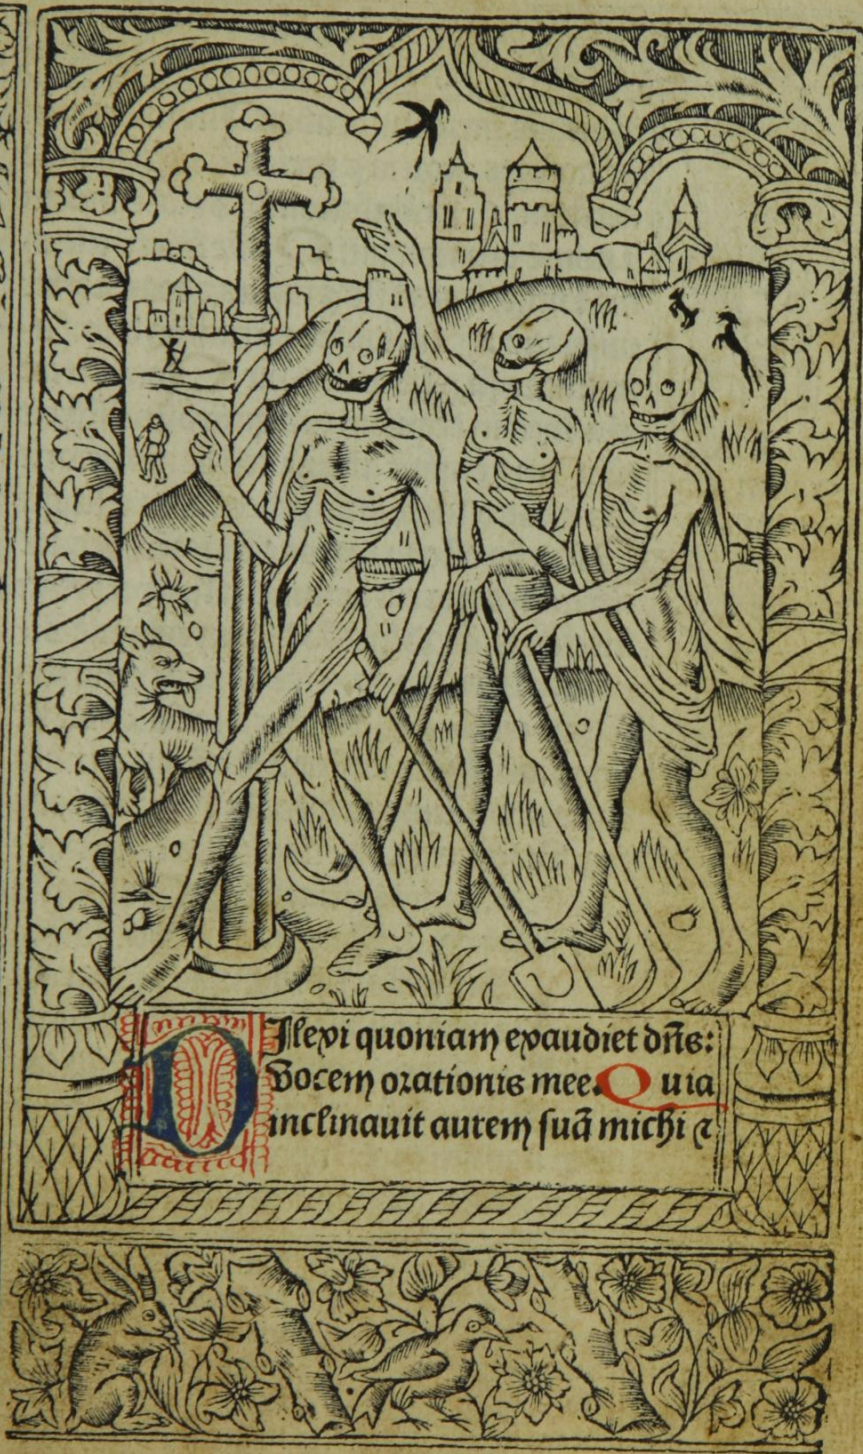 DIlexi quoniam exaudiet dn̄s:
Vocem orationis mee. Quia
inclinauit aurem suā michi ⁊